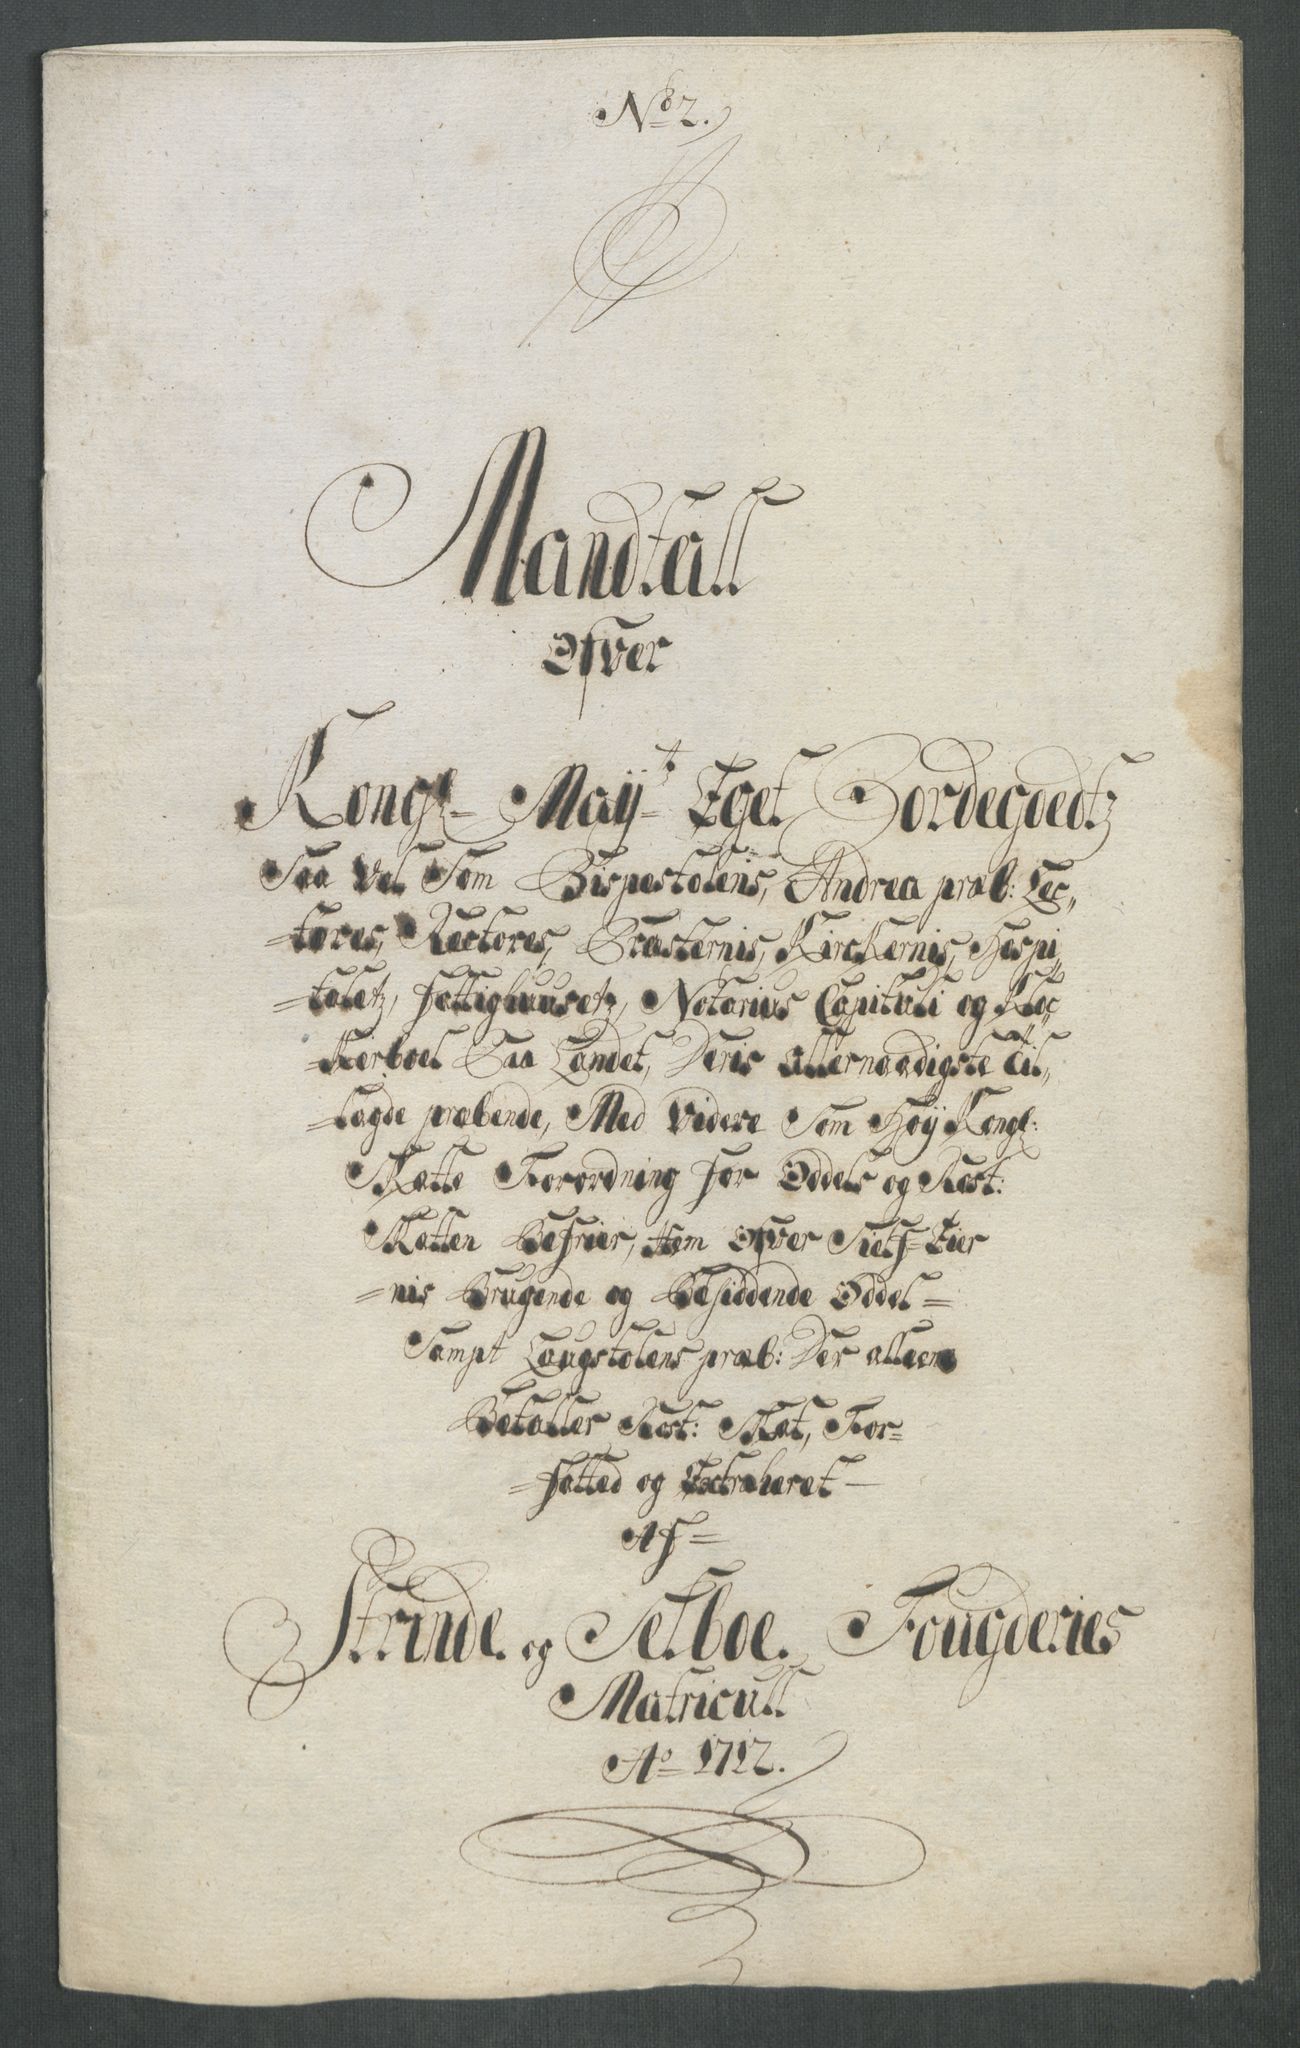 No 2.
Mandtall
Ofver
Kongl: Mayts Eget Jordegoedtz
Saa Vel Som Bispestolens, Andrea præb: Lec„
=tores, Rectores, Præsternis, Kirckernis, Hospi„
=taletz, fattighuusetz, Notarius Capituli og Kloc„
=kerboel Paa Landet, Deris Allernaadigste til„
=lagde præbende, Med Videre Som Høy Kongl:
Skatte Forordning for Oddels og Rost:
Skatten Befrier, Item Ofver Sielf=Eier
=nis Brugende og Besiddende Oddel=
Sampt Laugstolens præb: Der alleene
Betaller Rost: Skat, For=
=fatted og Extraheret
Af=
Strinde og Selboe Fougderies
Matricull
Ao 1712.